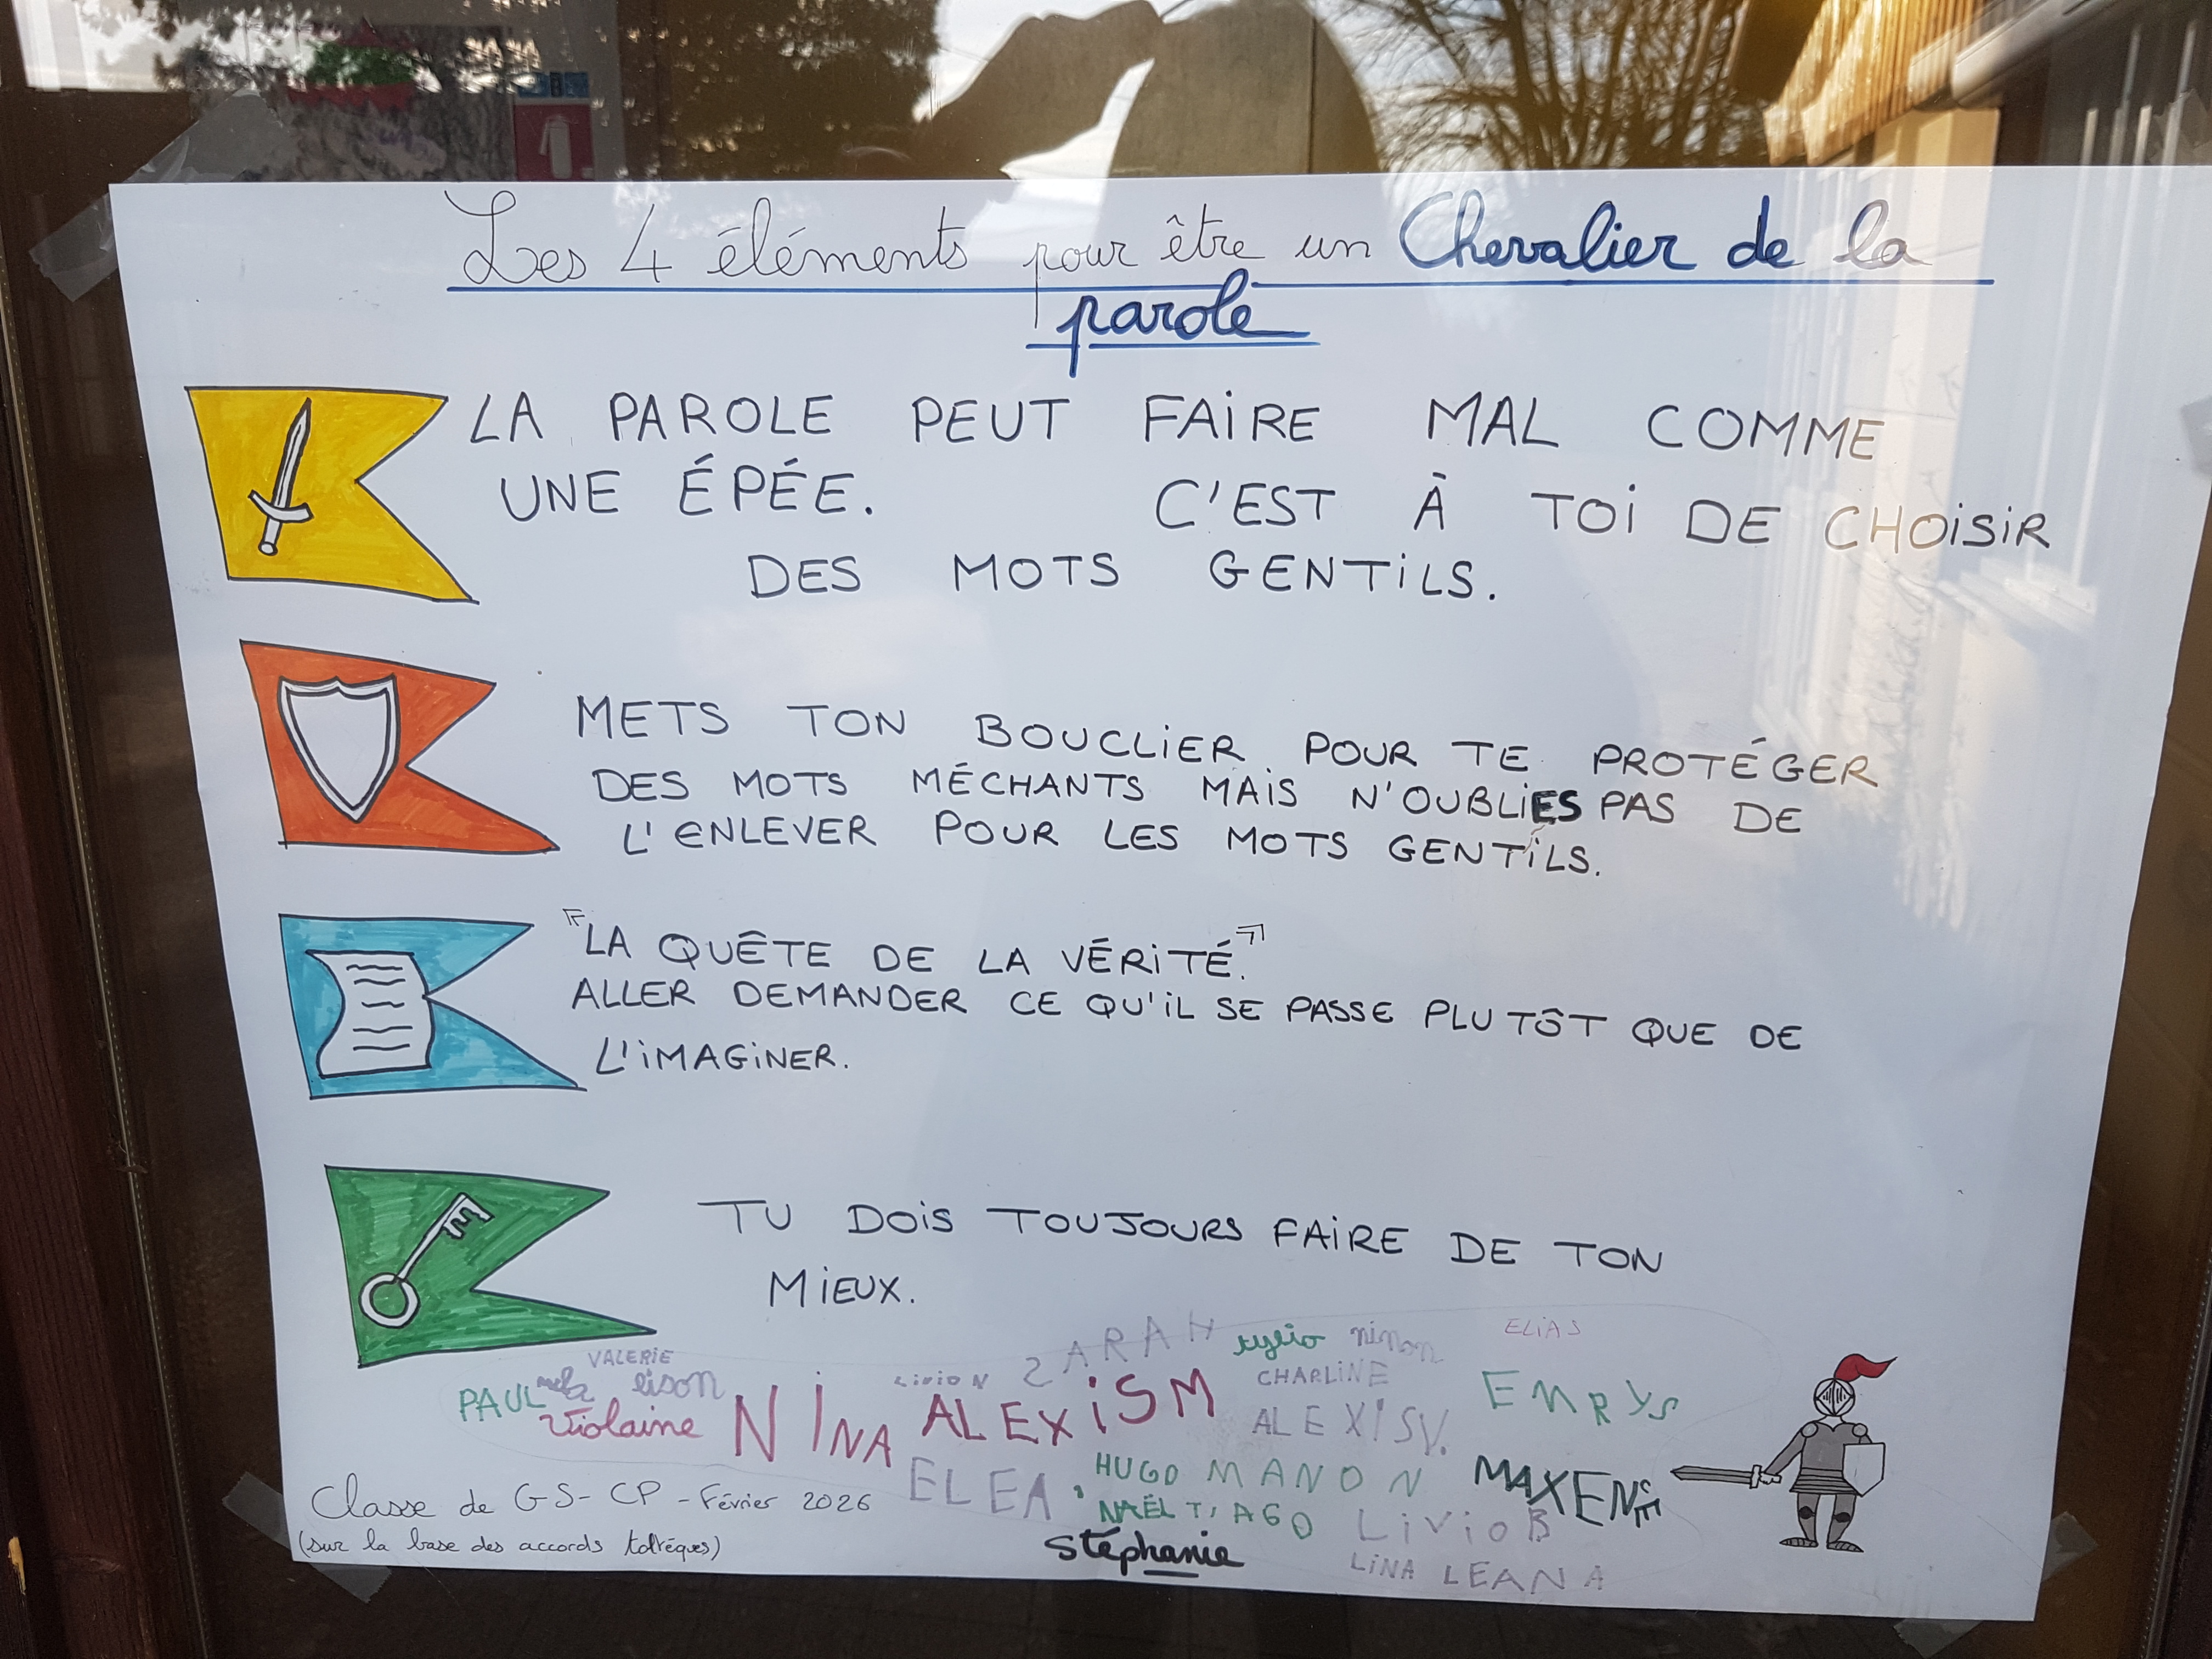 Les 4 éléments pour être un Chevalier de la
parole
LA PAROLE PEUT FAIRE MAL COMME
UNE ÉPÉE. C'EST À TOI DE CHOISIR
DES MOTS GENTILS.
METS TON BOUCLIER POUR TE PROTÉGER
DES MOTS MÉCHANTS MAIS N'OUBLIES PAS DE
L'ENLEVER POUR LES MOTS GENTILS.
"LA QUÊTE DE LA VÉRITÉ."
ALLER DEMANDER CE QU'IL SE PASSE PLUTÔT QUE DE
L'IMAGINER.
TU DOIS TOUJOURS FAIRE DE TON
MIEUX.
SARAH ninon ELIAS
VALERIE LiVioN CHARLINE
PAUL lison EMRYS
Violaine NINA ALEXiSM ALEXISV.
ELEA HUGO MANON MAXENCE
Classe de GS-CP - Février 2026
NAËL TIAGO LiVioB
(sur la base des accords toltéques)
Stéphanie
LiNA LEANA